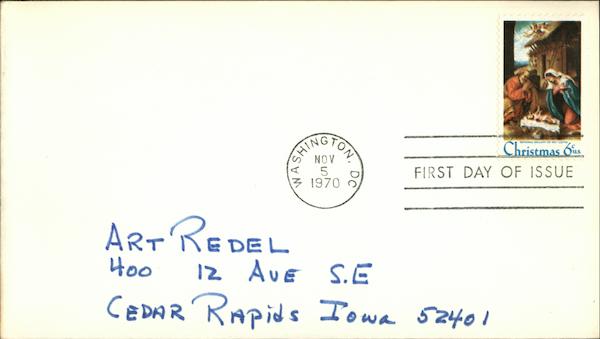 Christmas 6c U.S.
WASHINGTON, DC
NOV
5
1970
FIRST DAY OF ISSUE
ART REDEL
400 12 AVE S.E
CEDAR RAPIDS IOWA 52401